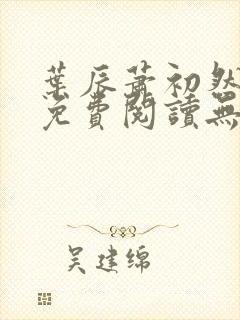 葉辰蕭初然
免費閱讀無
吴建绵